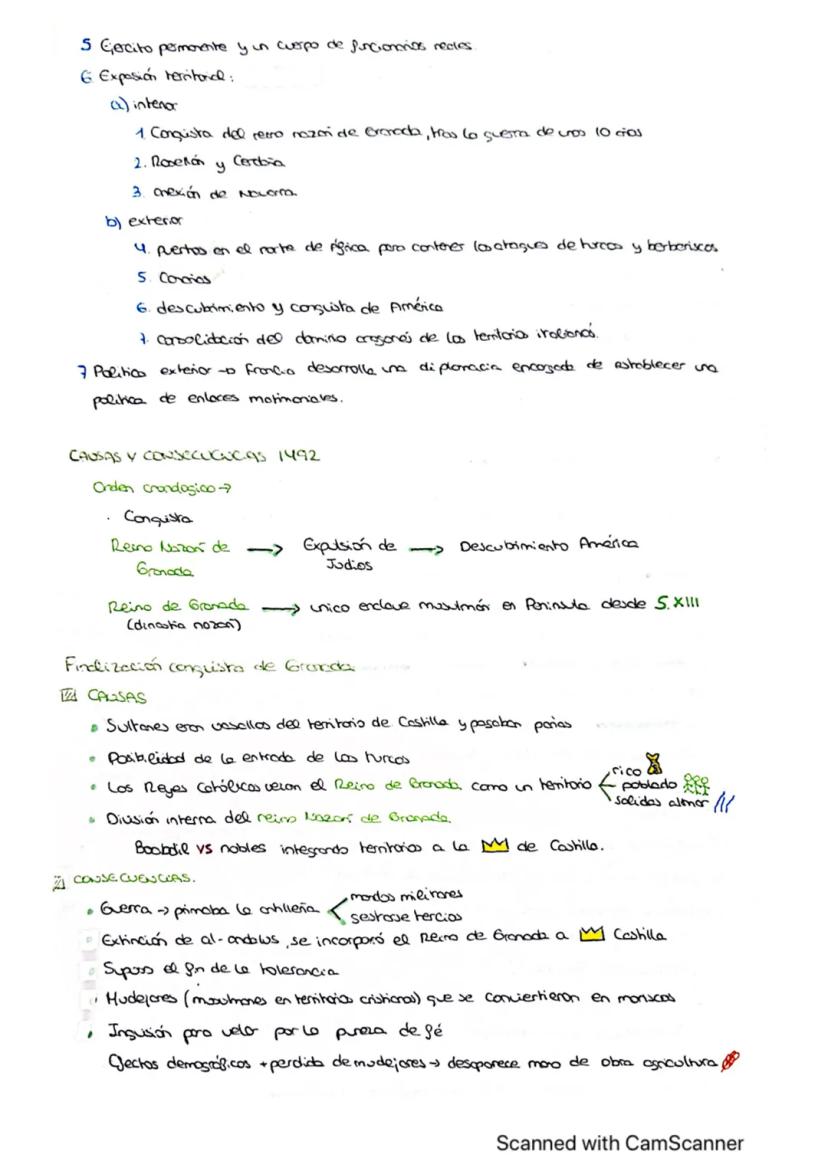 5 Ejercito permanente y un cuerpo de funcionarios reales.
6 Expasión territorial:
a) interior
1 Conquista del reino nazarí de Granada, tras la guerra de unos 10 años
2. Rosellón y Cerdaña
3. anexión de Navarra.
b) exterior
4. puertos en el norte de África para contener los ataques de turcos y berberiscos
5. Canarias
6. descubrimiento y conquista de América
7. consolidación del dominio aragonés de los territorios italianos.
7 Política exterior → Francia desarrolla una diplomacia encargada de establecer una
política de enlaces matrimoniales.
CAUSAS Y CONSECUENCIAS 1492
Orden cronologico →
· Conquista
Reino Nazarí de → Expulsión de → Descubrimiento América
Granada Judios
Reino de Granada → unico enclave musulmán en Peninsula desde S.XIII
(dinastia nazarí)
Finalización conquista de Granada
CAUSAS
• Sultanes eran vasallos del territorio de Castilla y pagaban parias
• Posibilidad de la entrada de los turcos
• Los Reyes Católicos veian el Reino de Granada como un territorio rico
poblado
salidas al mar
• División interna del reino Nazarí de Granada.
Boabdil VS nobles integrando territorios a la de Castilla.
CONSECUENCIAS.
• Guerra → primaba la artilleria mandos militares
tercios
• Extinción de al-andalus, se incorporó el Reino de Granada a Castilla
• Supuso el fin de la tolerancia
• Mudejares (musulmanes en territorios cristianos) que se convirtieron en moriscos
• Inquisión para velar por la pureza de fé
Efectos demográficos + perdida de mudejares → desaparece mano de obra agricultura
Scanned with CamScanner